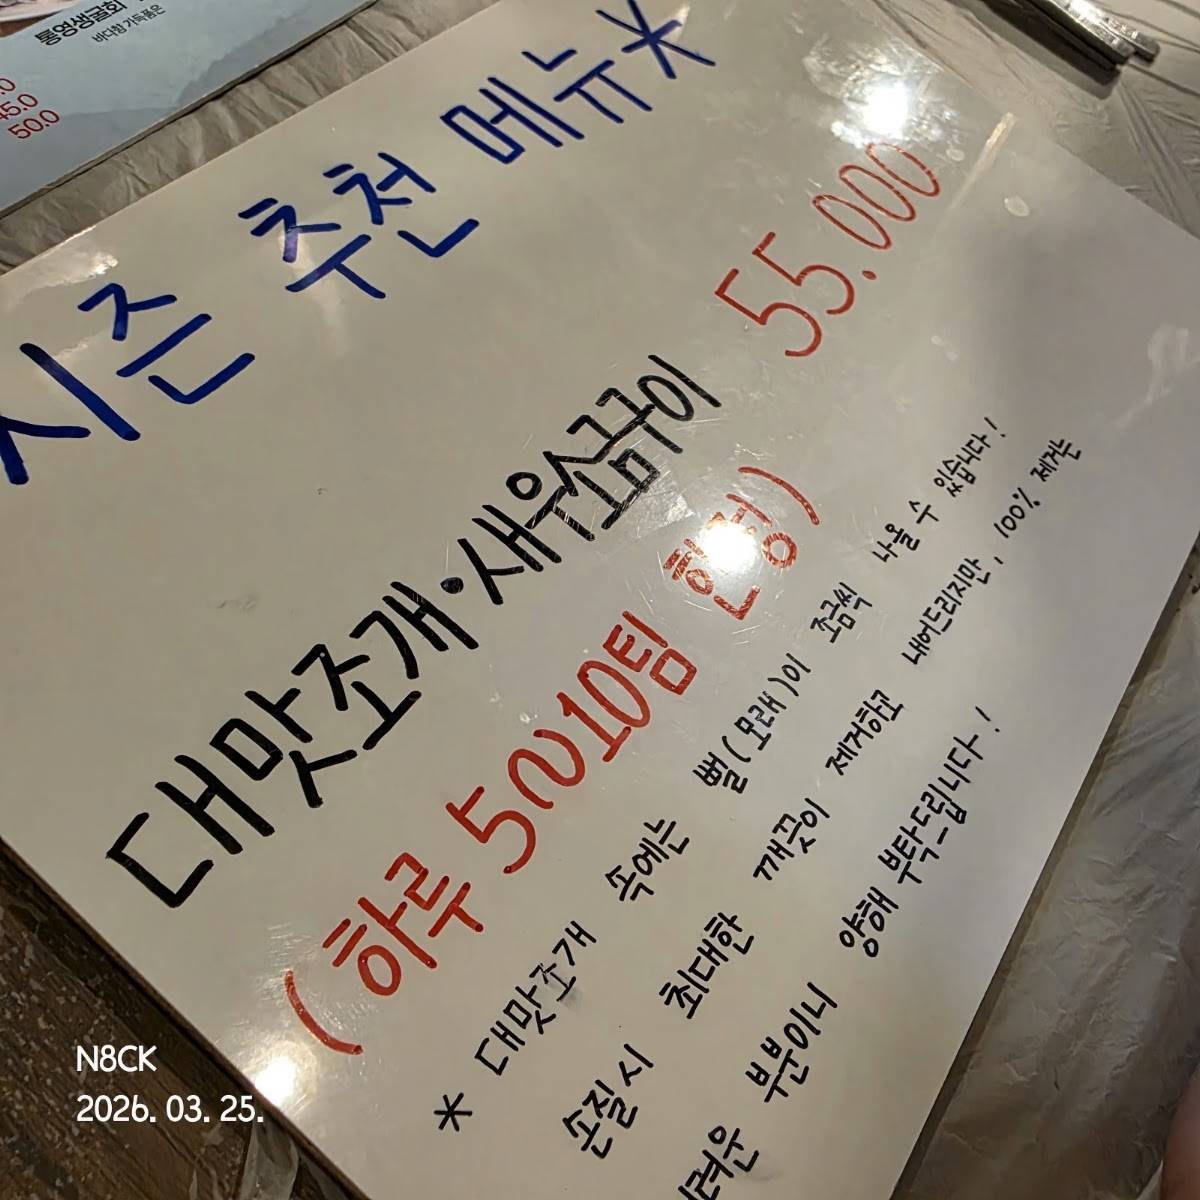 통영생굴회
바다향가득품은
45.0
50.0
시즌 추천 메뉴*
대맛조개·새우소금구이 55.000
(하루 5~10팀 한정)
* 대맛조개 속에는 뻘(모래)이 조금씩 나올 수 있습니다!
손질시 최대한 깨끗이 제거하고 내어드리지만, 100% 제거는
려운 부분이니 양해 부탁드립니다!
N8CK
2026. 03. 25.